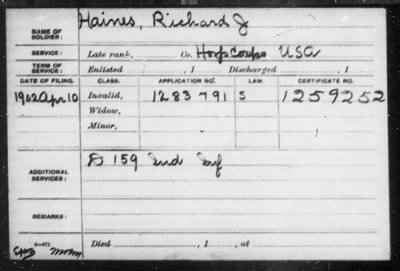 NAME OF SOLDIER: Haines, Richard J
SERVICE: Late rank, Co. Hosp Corps USA
TERM OF SERVICE: Enlisted , 1 Discharged , 1
DATE OF FILING. CLASS. APPLICATION NO. LAW. CERTIFICATE NO.
1902 Apr 10 Invalid, 1283791 S 1259252
Widow,
Minor,
ADDITIONAL SERVICES: D 159 Ind Inf
REMARKS:
Died , 1 , at